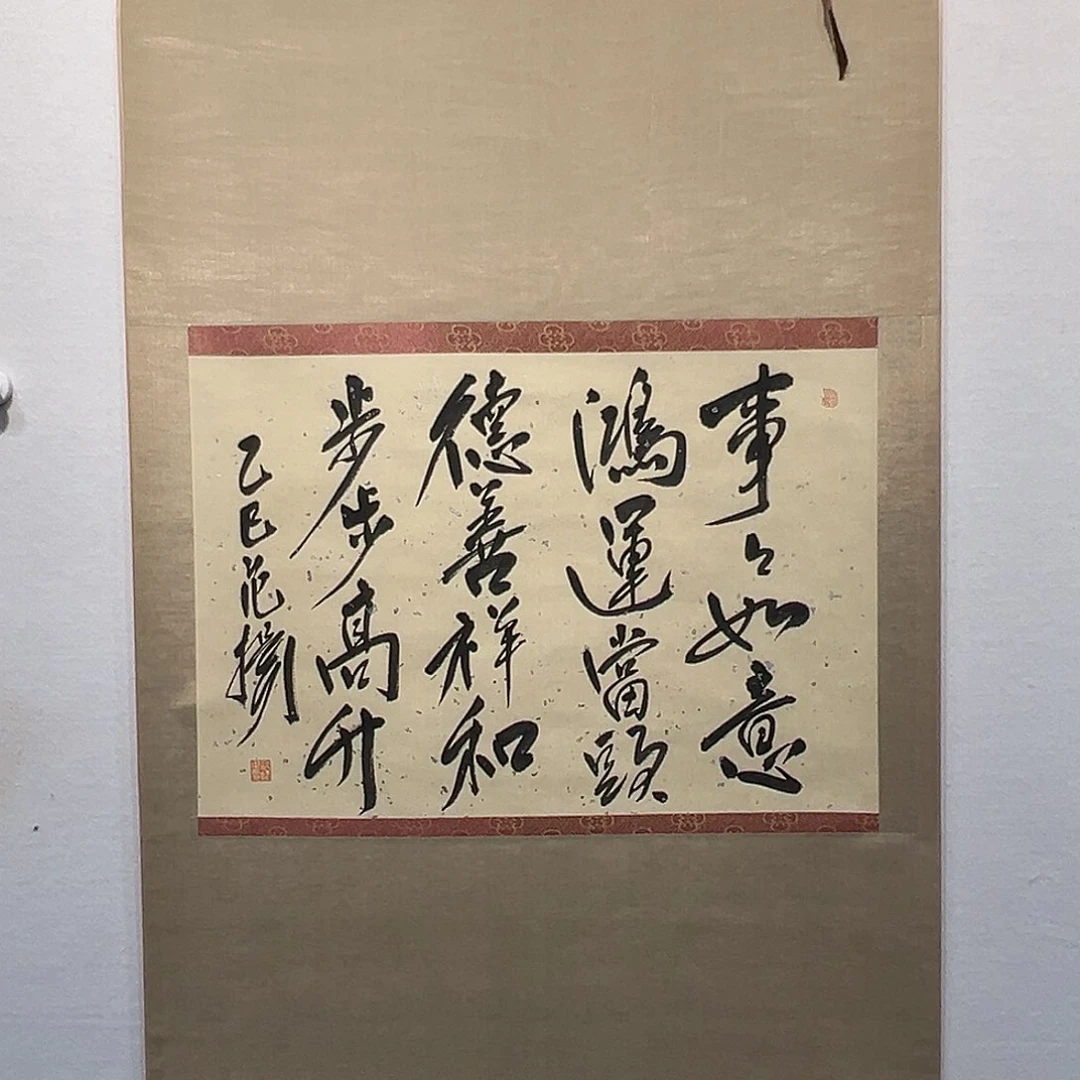 事〻如意
鴻運當頭
德善祥和
步步高升
乙巳范